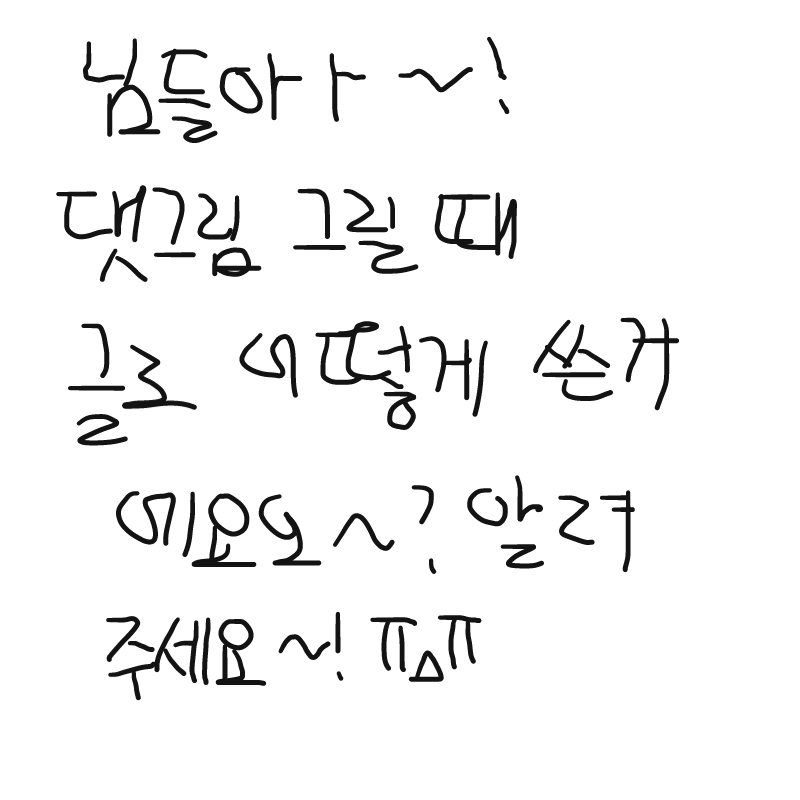 님들아ㅏ ~!
댓그림 그릴 때
글로 어떻게 쓴거
예요오~? 알려
주세요~! ㅠㅁㅠ